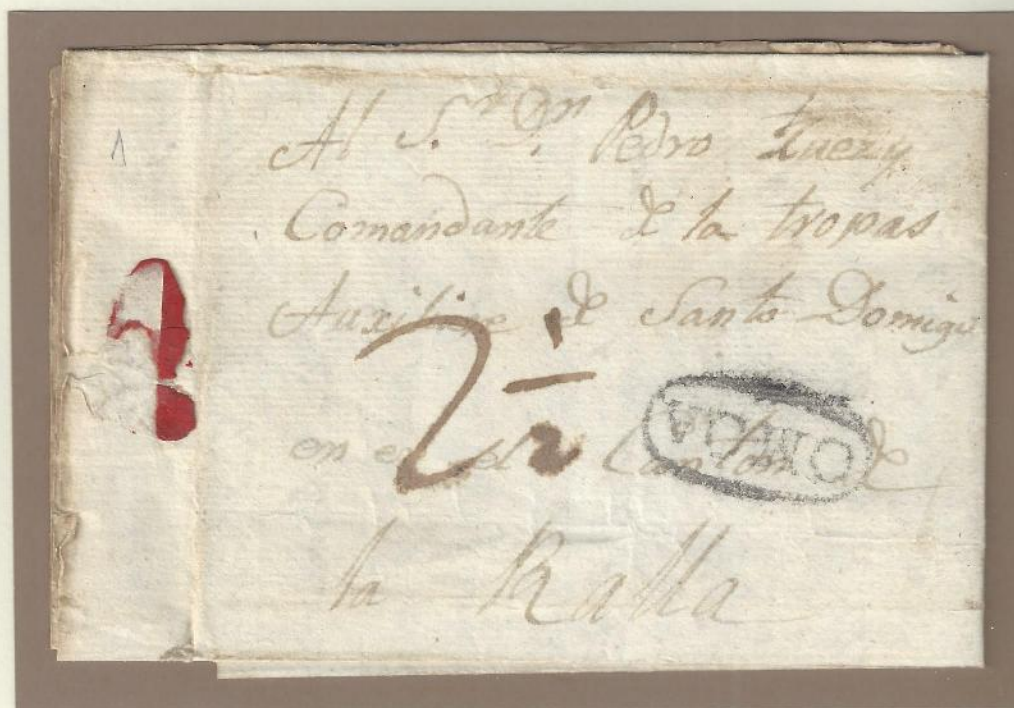 Al S.r D.n Pedro
Comandante de la tropas
Auxiliare de Santo Domigo
2 1/2
en el Canton de
la Ralla